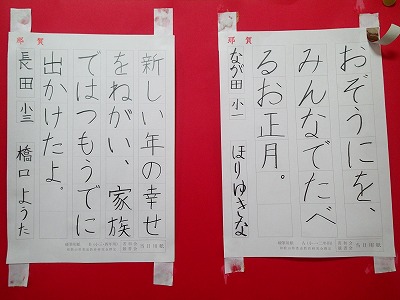 那賀
おぞうにを、
みんなでたべ
るお正月。
なが田 小一 ほりゆきな
当日用紙
那賀
新しい年の幸せ
をねがい、家族
ではつもうでに
出かけたよ。
長田 小三 橋口ようた
当日用紙